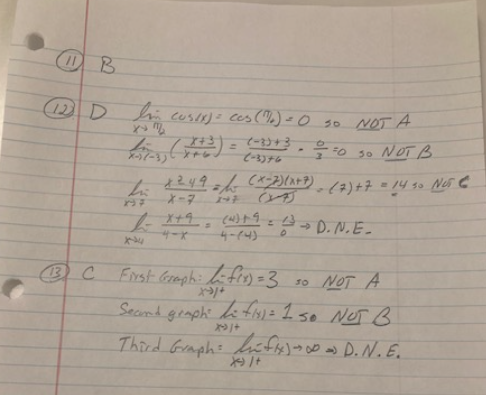 11 B
12 D lim x→π/2 cos(x) = cos(π/2) = 0 so NOT A
lim x→(-3) (x+3/x+6) = (-3)+3/(-3)+6 = 0/3 = 0 so NOT B
lim x→7 x²-49/x-7 = lim x→7 (x-7)(x+7)/(x-7) = (7)+7 = 14 so NOT C
lim x→4 x+9/4-x = (4)+9/4-(4) = 13/0 → D.N.E.
13 C First Graph: lim x→1+ f(x) = 3 so NOT A
Second graph: lim x→1+ f(x) = 1 so NOT B
Third Graph: lim x→1+ f(x) → ∞ ⇒ D.N.E.